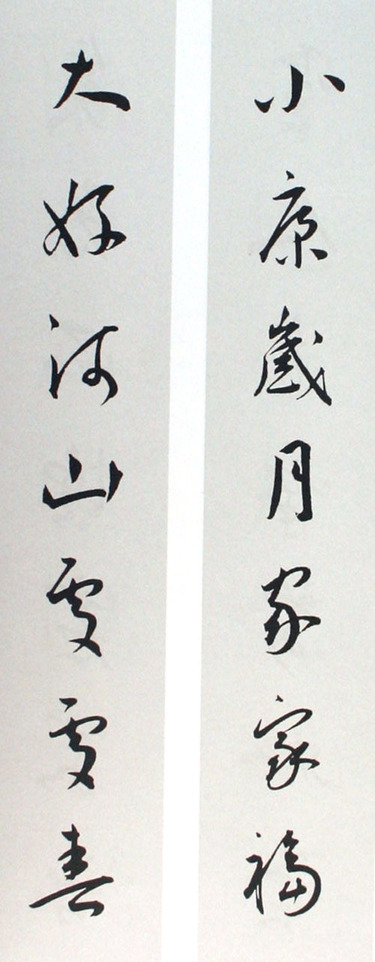 小康歲月家家福
大好河山處處春